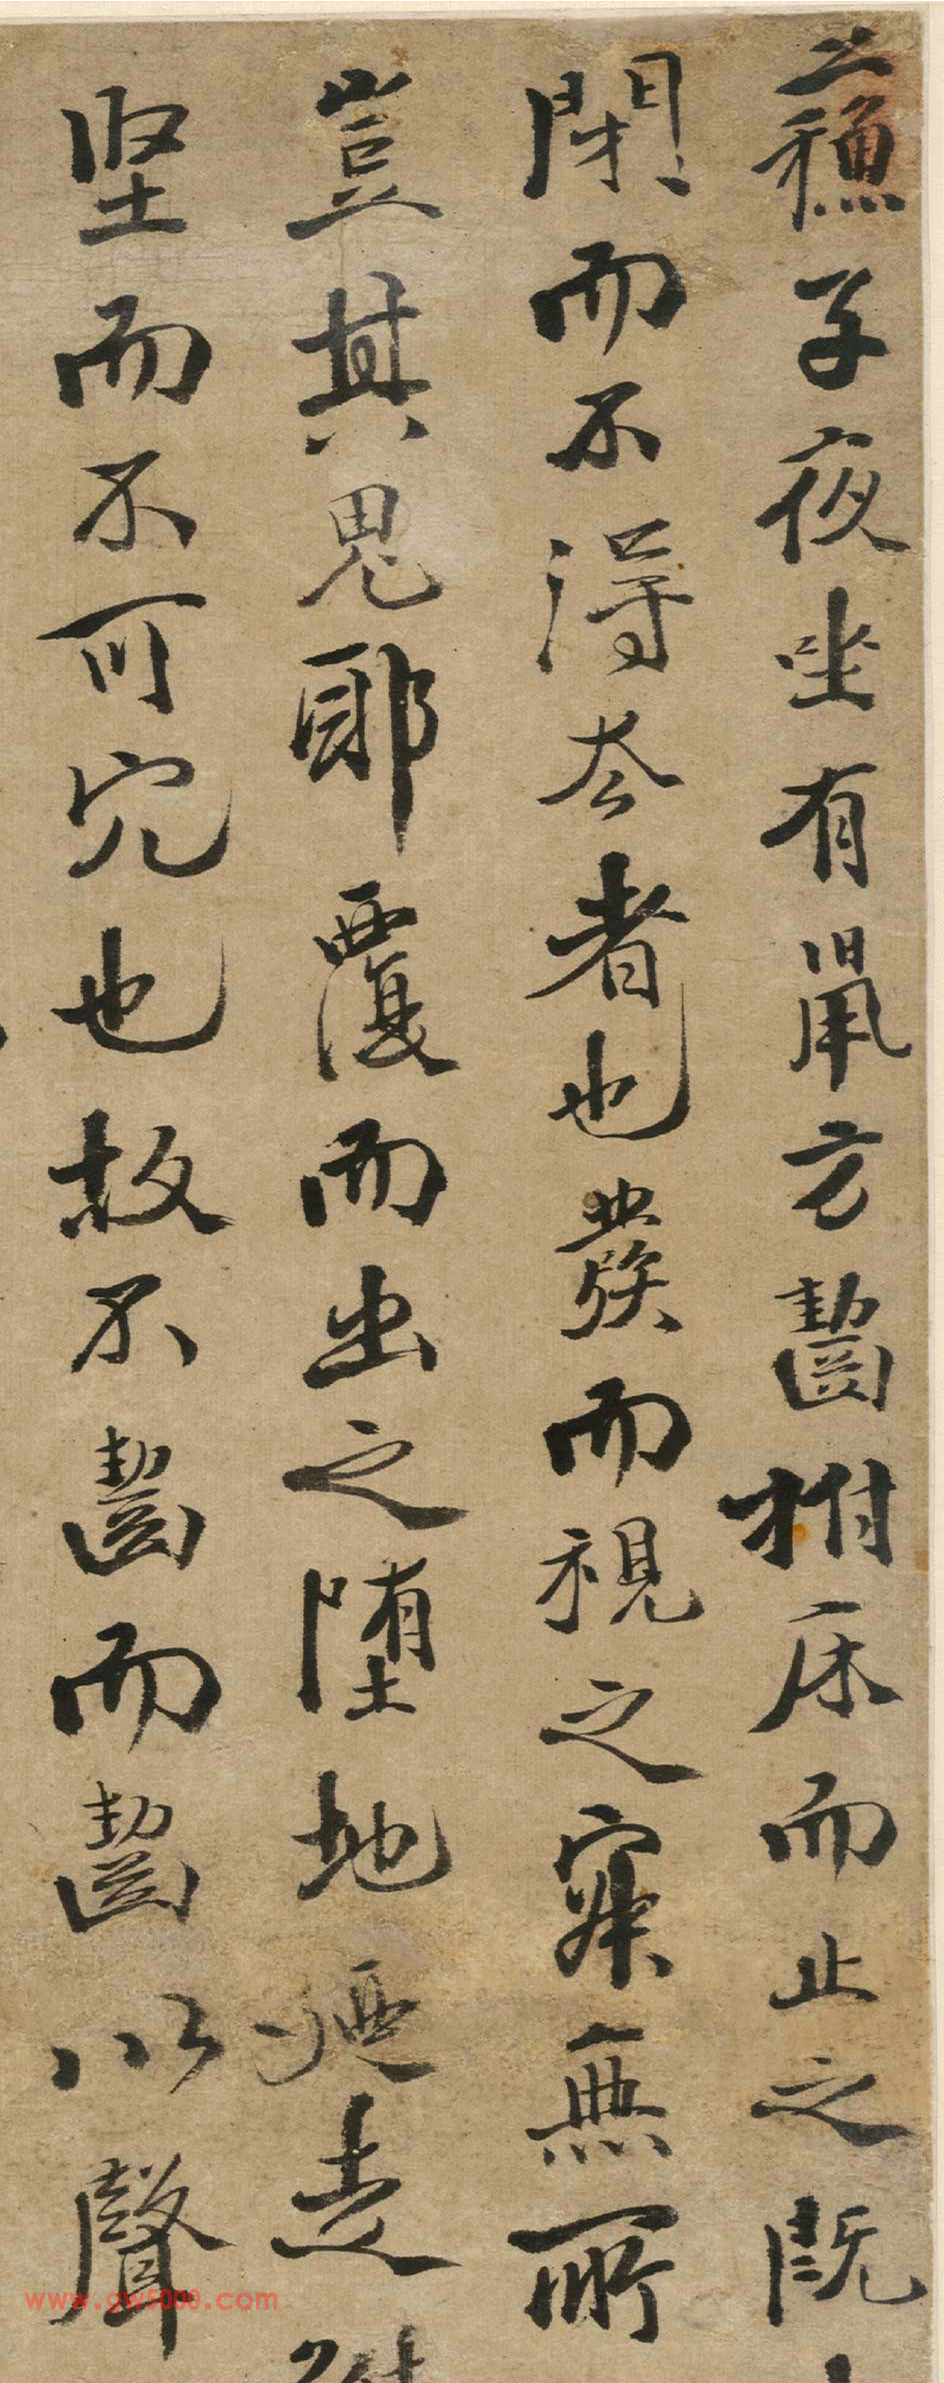 蘇子夜坐有鼠方齧拊床而止之既
閉而不得去者也發而視之寂無所
豈其鬼耶覆而出之堕地廼走
堅而不可穴也故不齧而齧以聲
www.gw5000.com